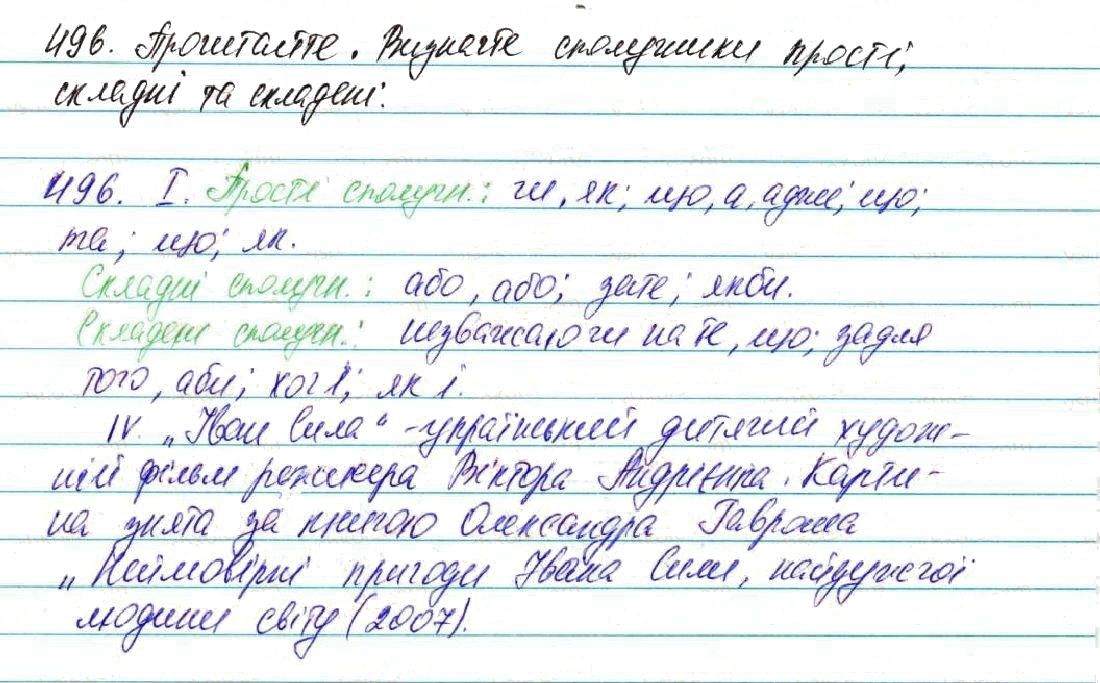 496. Прочитайте. Визначте сполучники прості,
складні та складені.
496. I. Прості сполучн.: чи, як; що, а, адже; що;
та; що; як.
Складні сполучн.: або, або; зате; якби.
Складені сполучн.: незважаючи на те, що; задля
того, аби; хоч і; як і.
IV. „Іван Сила“ - український дитячий худож-
ній фільм режисера Віктора Андрієнка. Карти-
на знята за книгою Олександра Гавроша
„Неймовірні пригоди Івана Сили, найдужчої
людини світу (2007).